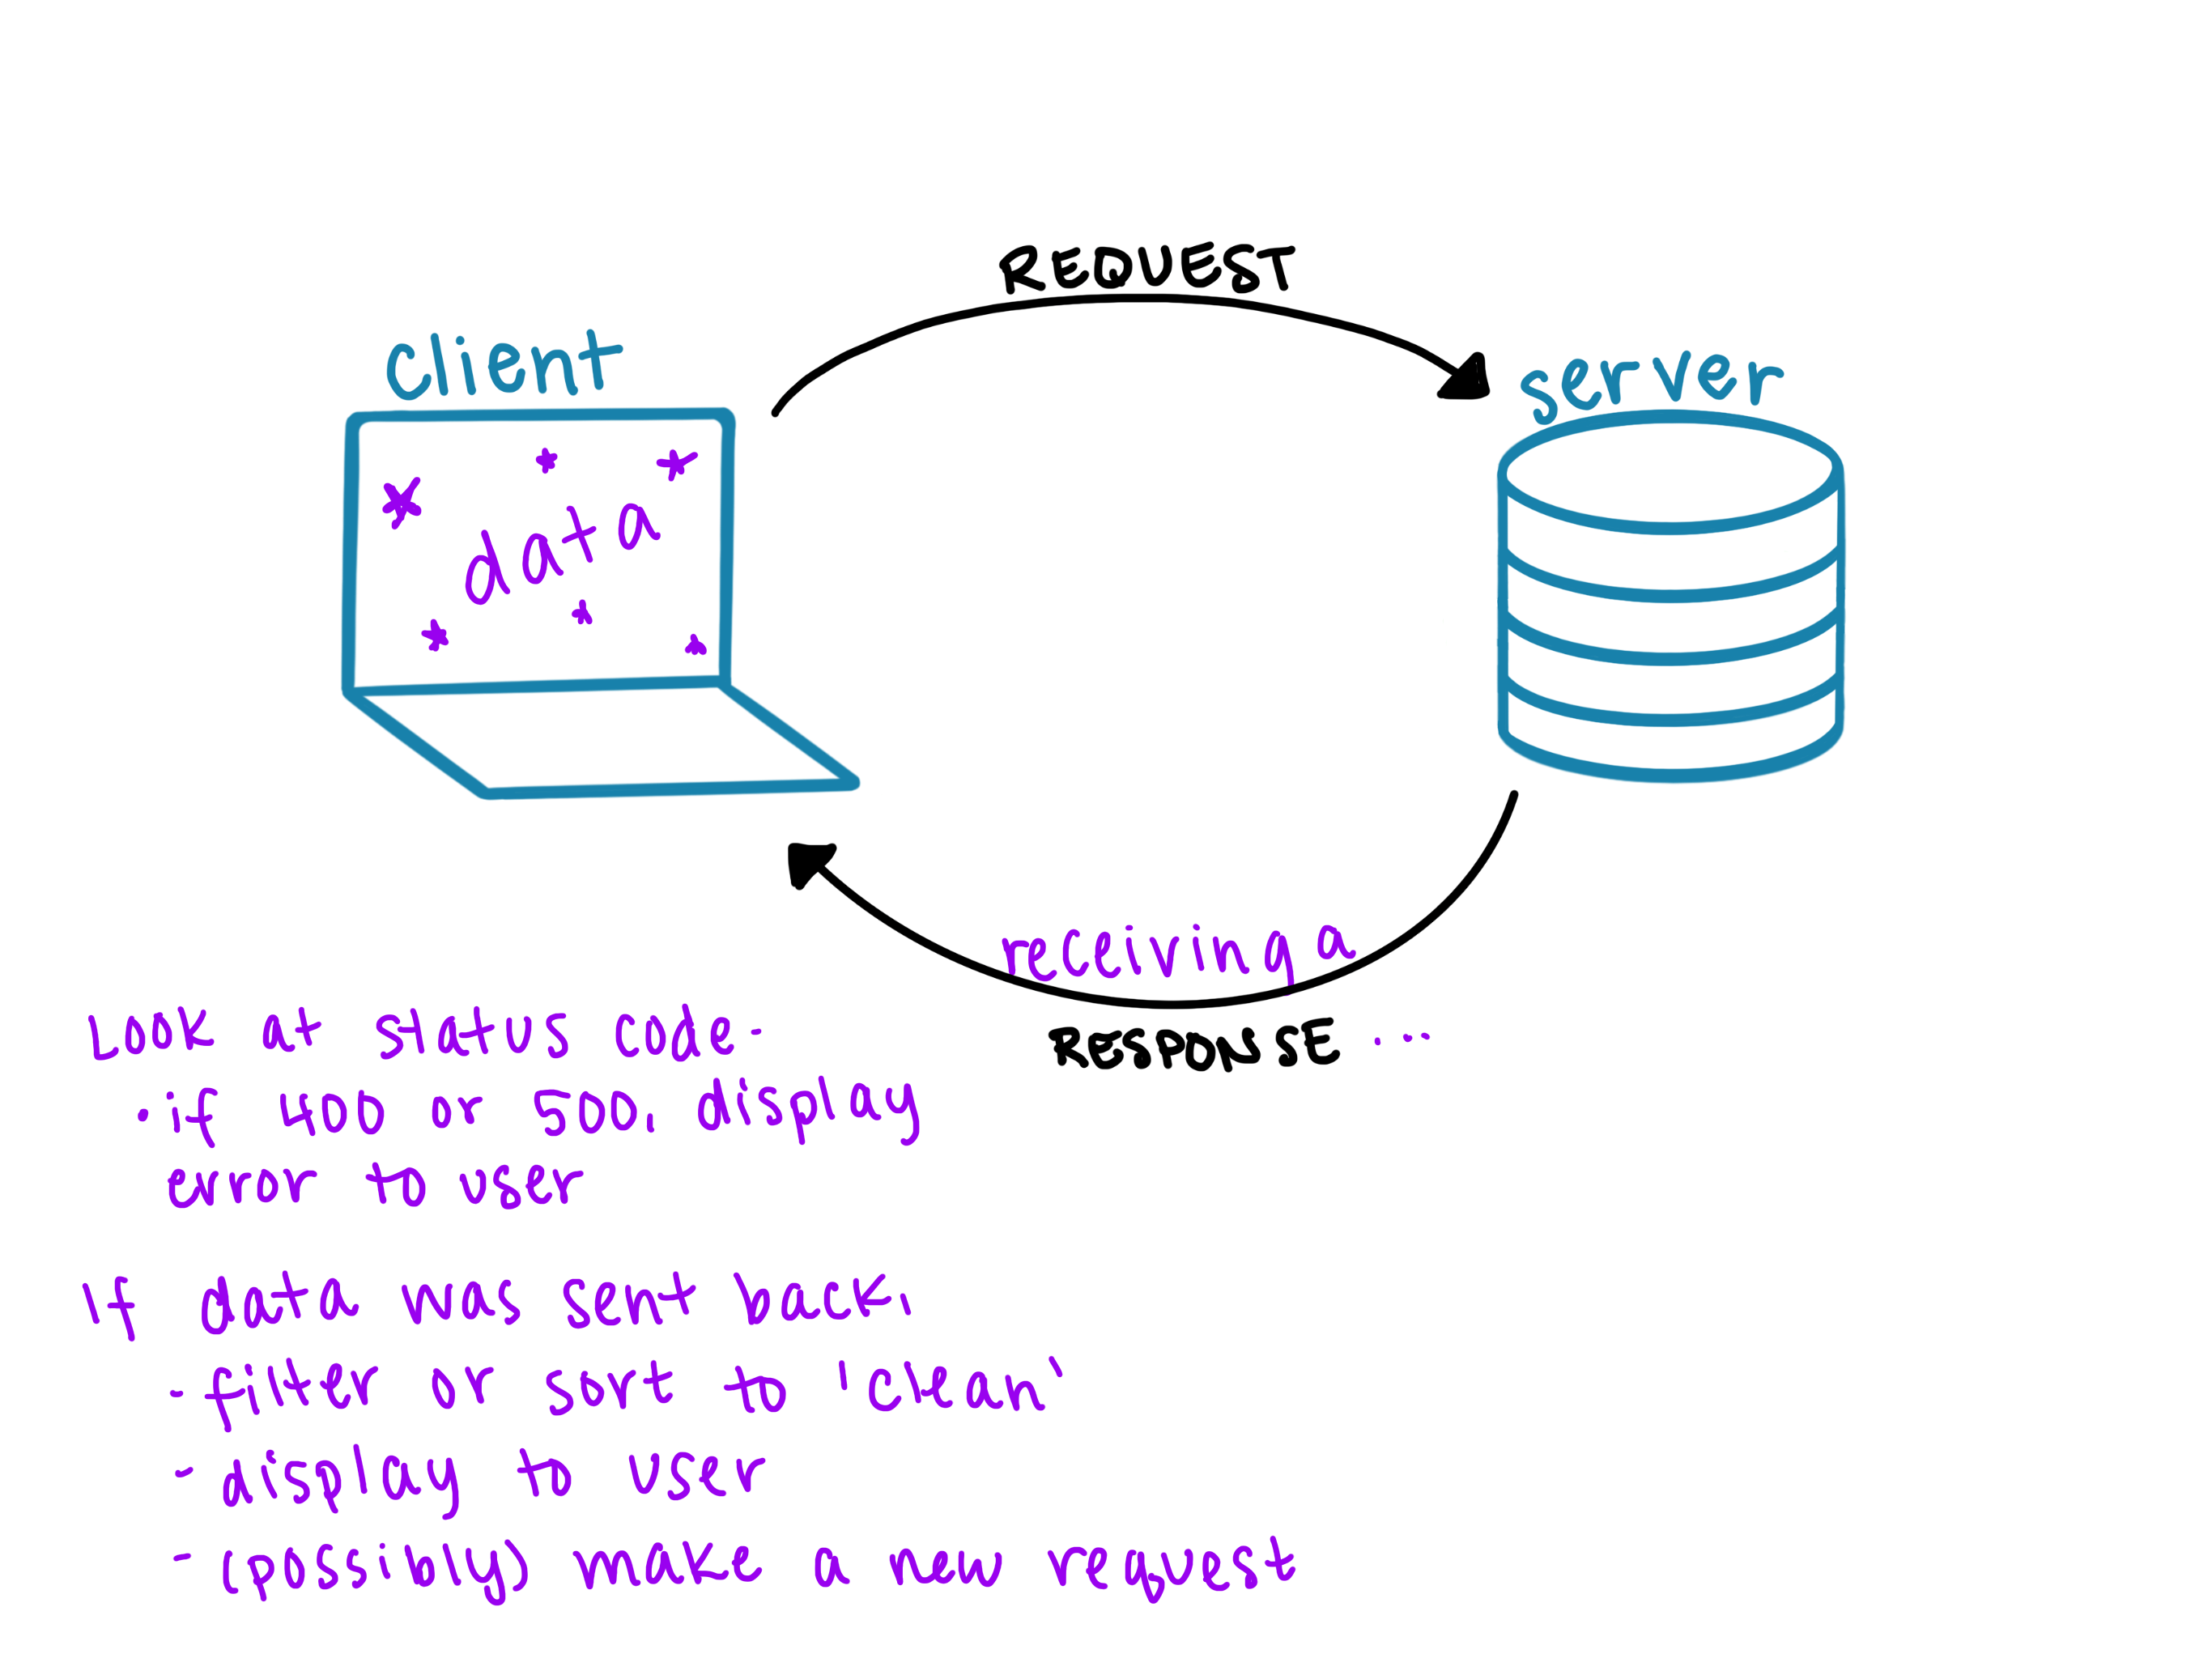 REQUEST
client
server
data
receiving a
RESPONSE ...
Look at status code-
• if 400 or 500, display
error to user
If data was sent back,
- filter or sort to 'clean'
- display to user
- (possibly) make a new request